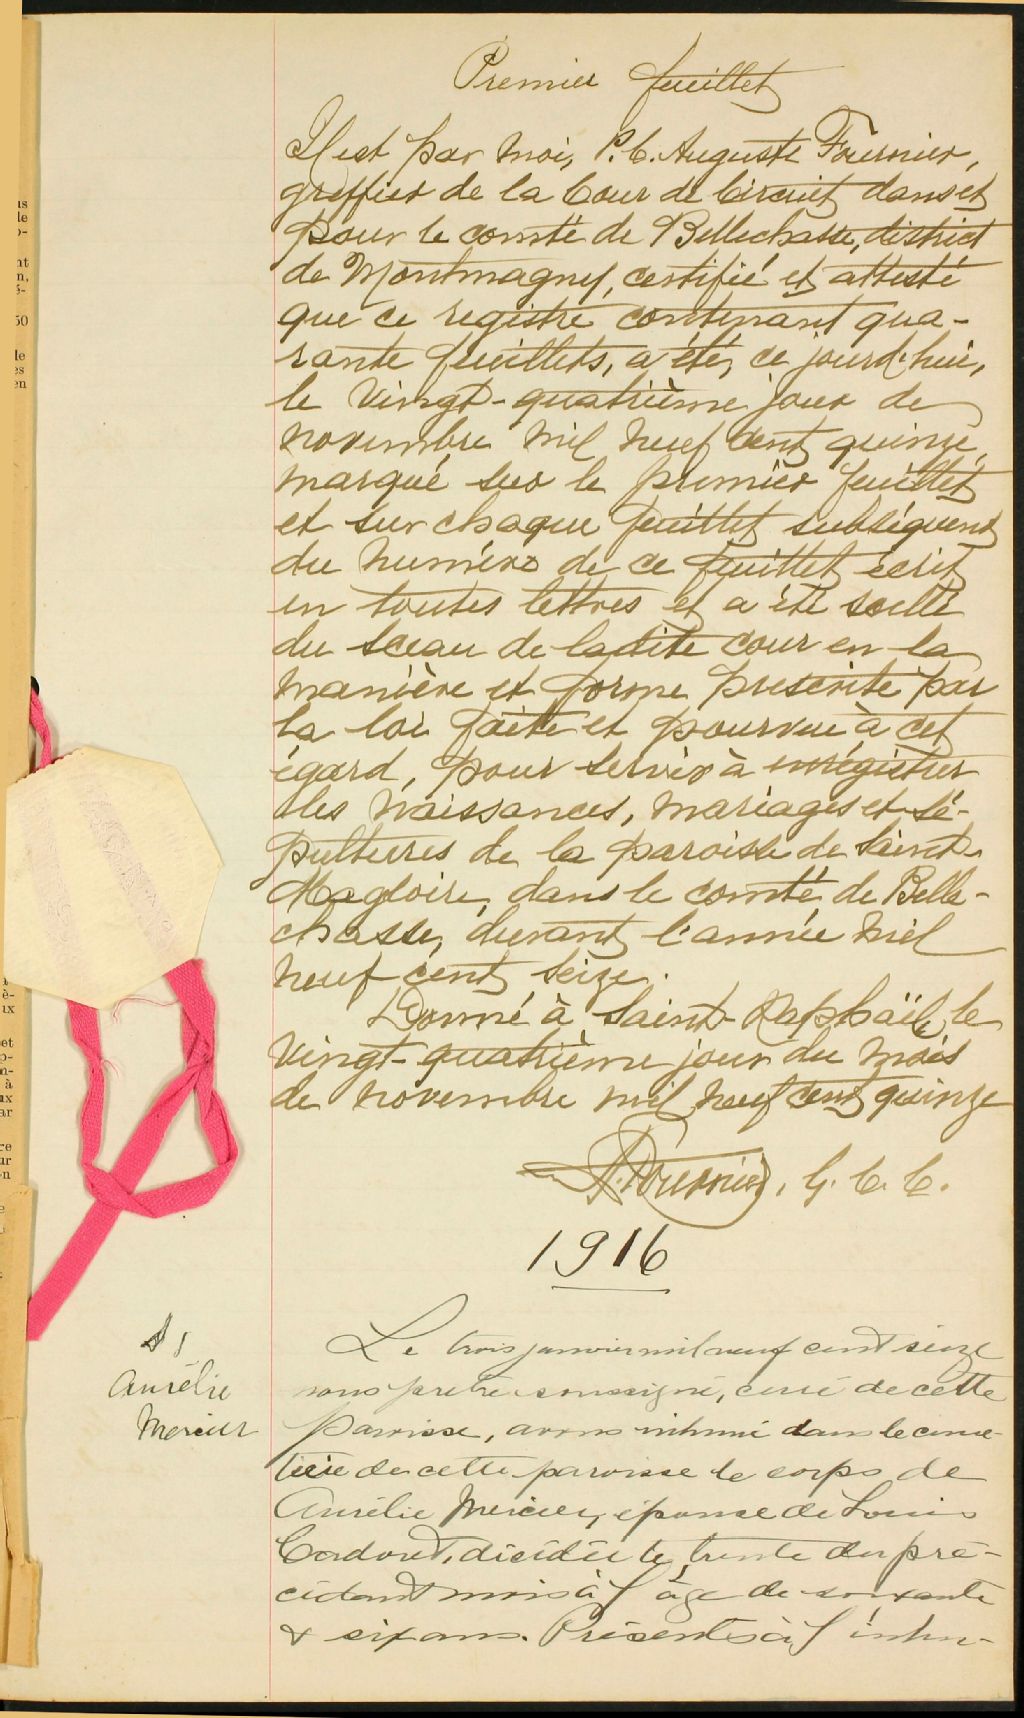 Premier feuillet
Il est par moi, P. C. Auguste Fournier,
greffier de la Cour de Circuit dans et
pour le comté de Bellechasse, district
de Montmagny, certifié et attesté
que ce registre contenant qua-
rante feuillets, a été, ce jourd'hui,
le vingt-quatrième jour de
novembre mil neuf cent quinze,
marqué sur le premier feuillet
et sur chaque feuillet subséquent
du numéro de ce feuillet écrit
en toutes lettres et a été scellé
du sceau de ladite cour en la
manière et forme prescrite par
la loi faite et pourvue à cet
égard, pour servir à enrégistrer
les naissances, mariages et sé-
pultures de la paroisse de Saint-
Magloire, dans le comté de Belle-
chasse, durant l'année mil
neuf cent seize.
Donné à Saint-Raphaël, le
vingt-quatrième jour du mois
de novembre mil neuf cent quinze
A. Fournier, G. C. C.
1916
S 1
Aurélie
Mercier
Le trois janvier mil neuf cent seize
nous prêtre soussigné, curé de cette
paroisse, avons inhumé dans le cime-
tière de cette paroisse le corps de
Aurélie Mercier, épouse de Louis
décédée le trente du pré-
cédent mois à l'âge de soixante
& six ans. Présents à l'inhu-